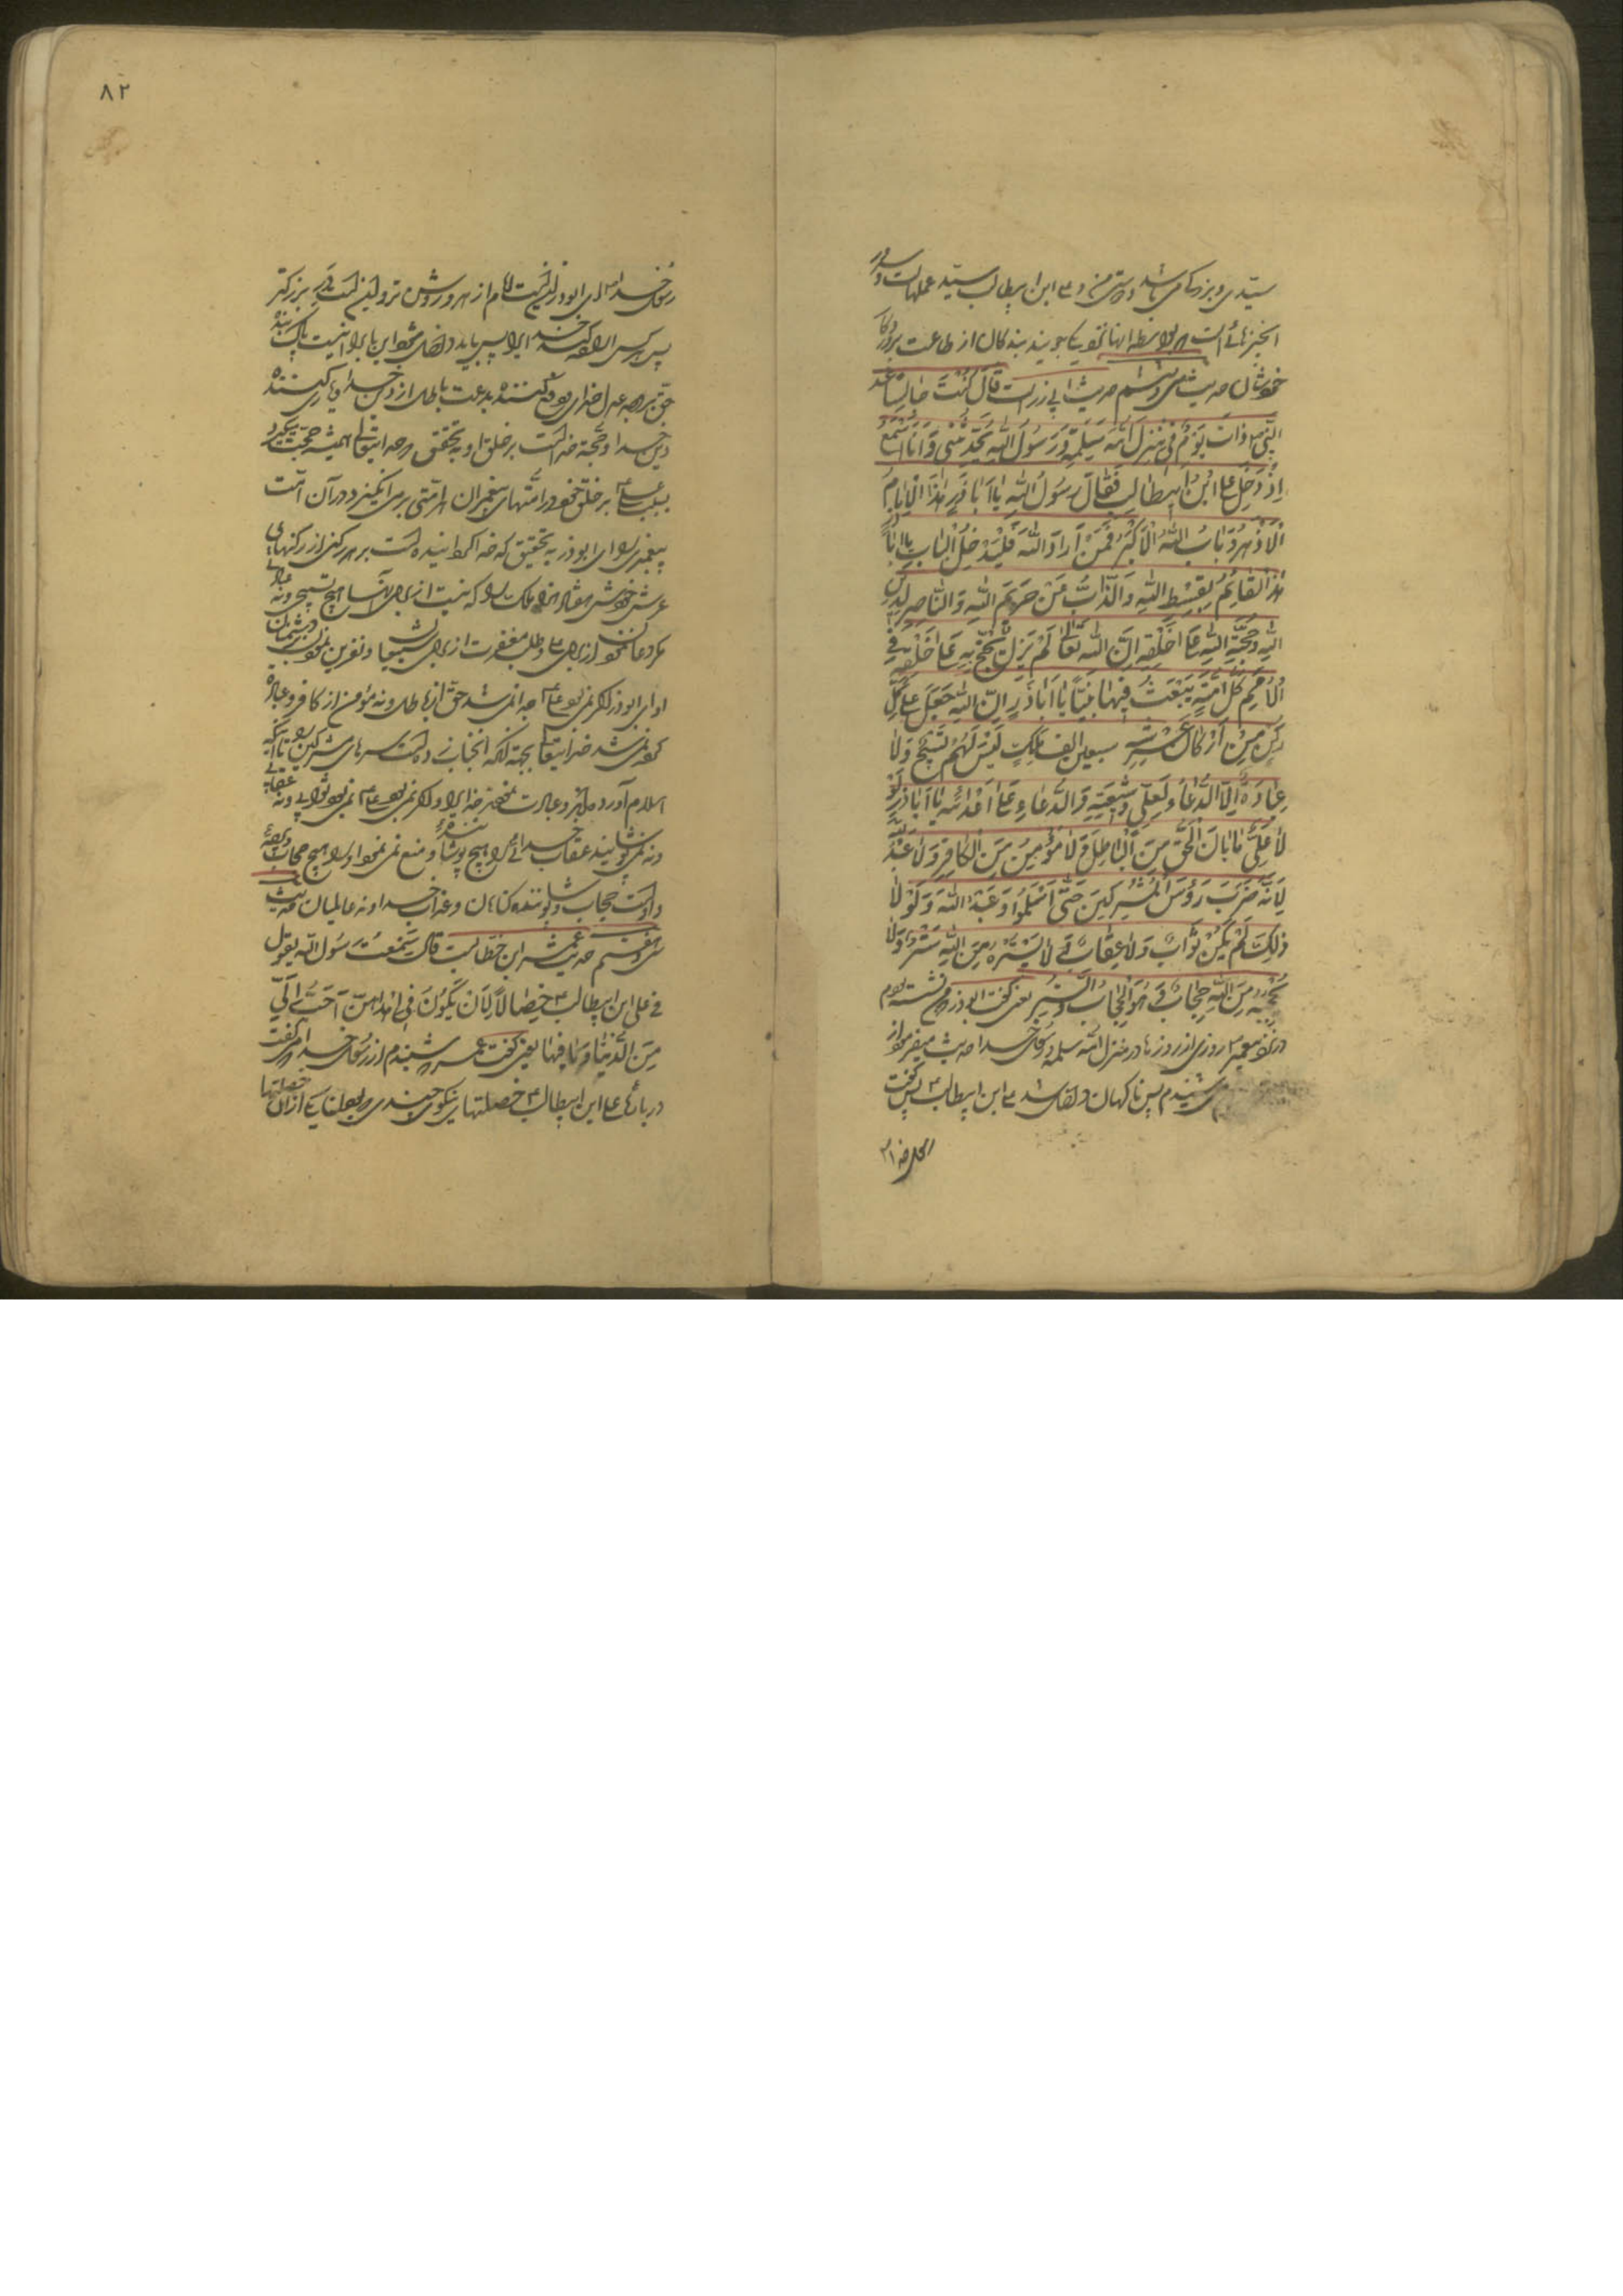 سیدی و بزرگی می باشد و دوستی من و علی ابن ابیطالب سید عملهاست و
انچیزهائی است که بواسطه انها تقرب میجویند بندگان از طاعت پروردگار
خودشان حدیث سی و ششم حدیث ابی ذر است قال کنت جالسا عند
النبی ذات یوم فی منزل ام سلمة و رسول الله یحدثنی و انا اسمع
اذ دخل علی ابن ابیطالب فقال رسول الله یا ابا ذر هذا الامام
الازهر و باب الله الاکبر فمن اراد الله فلیدخل الباب یا ابا
هذا القائم بقسط الله و الذاب من حریم الله و الناصر لدین
الله و حجة الله علی خلقه ان الله تعالی لم یزل یحتج به علی خلقه فی
الامم کل امة یبعث فیها نبیا یا اباذر ان الله جعل علی کل
رکن من ارکان عرشه سبعین الف ملک لیس لهم تسبیح ولا
عبادة الا الدعاء لعلی و شیعته و الدعاء علی اعدائه یا اباذر لو
لا علی ما بان الحق من الباطل و لا مؤمن من الکافر و لا عبد الله
لانه ضرب رؤس المشرکین حتی اسلموا و عبد الله و لولا
ذلک لم یکن ثواب و لا عقاب لا یستره من الله ستر و لا
یحجبه من الله حجاب و هو الحجاب و الستر یعنی گفت ابوذر من نشسته بودم
در نزد پیغمبر روزی از روزها در منزل ام سلمه و رسول خدا حدیث میفرمود از
می شنیدم پس ناگهان داخل شد علی ابن ابیطالب پس گفت
۸۲
رسول خدا ای ابوذر اینست امام ازهر و روشن تر و اینست در بزرگتر
پس هر کس اراده کند خدا را پس باید داخل شود این باب را اینست
حق به عدل خدای و دفع کننده بدعت باطل از دین خدا و یاری کننده
دین خدا و حجة خدا است بر خلق او به تحقیق که خدایتعالی همیشه حجت میگیرد
بسبب علی بر خلق خود در امتهای پیغمبران هر امتی برمی انگیزد در آن امت
پیغمبری را ای ابوذر به تحقیق که خدا گردانیده است بر هر رکنی از رکنهای
عرش خودش هفتاد هزار ملک را که نیست از برای آنها هیچ تسبیحی و نه عبادتی
مگر دعا نمودن از برای علی و طلب مغفرت از برای شیعیان و نفرین نمودن بر دشمنان
او ای ابوذر اگر نمی بود علی جدا نمی شد حق از باطل و نه مؤمن از کافر و عبادة
کرده نمی شد خدایتعالی بجهة انکه انجناب زده است سرهای مشرکین را تا اینکه
اسلام آوردند و عبادت نمودند خدا را و اگر نمی بود علی نمی بود ثوابی و نه عقابی
و نمی پوشانید عقاب خدائی را هیچ پوشاننده و منع نمی نمود او را هیچ حجاب
و اوست حجاب و پوشاننده گناهان و عذاب خدا و نه عالمیان حدیث
سی و هفتم حدیث عمر ابن خطاب است قال سمعت رسول الله یقول
فی علی ابن ابیطالب خصالا لان یکون فی احداهن احب الی
من الدنیا و ما فیها یعنی گفت عمر شنیدم از رسول خدا که می گفت
در بارهٔ علی ابن ابیطالب خصلتهای نیکوی چندی از آن خصلتها